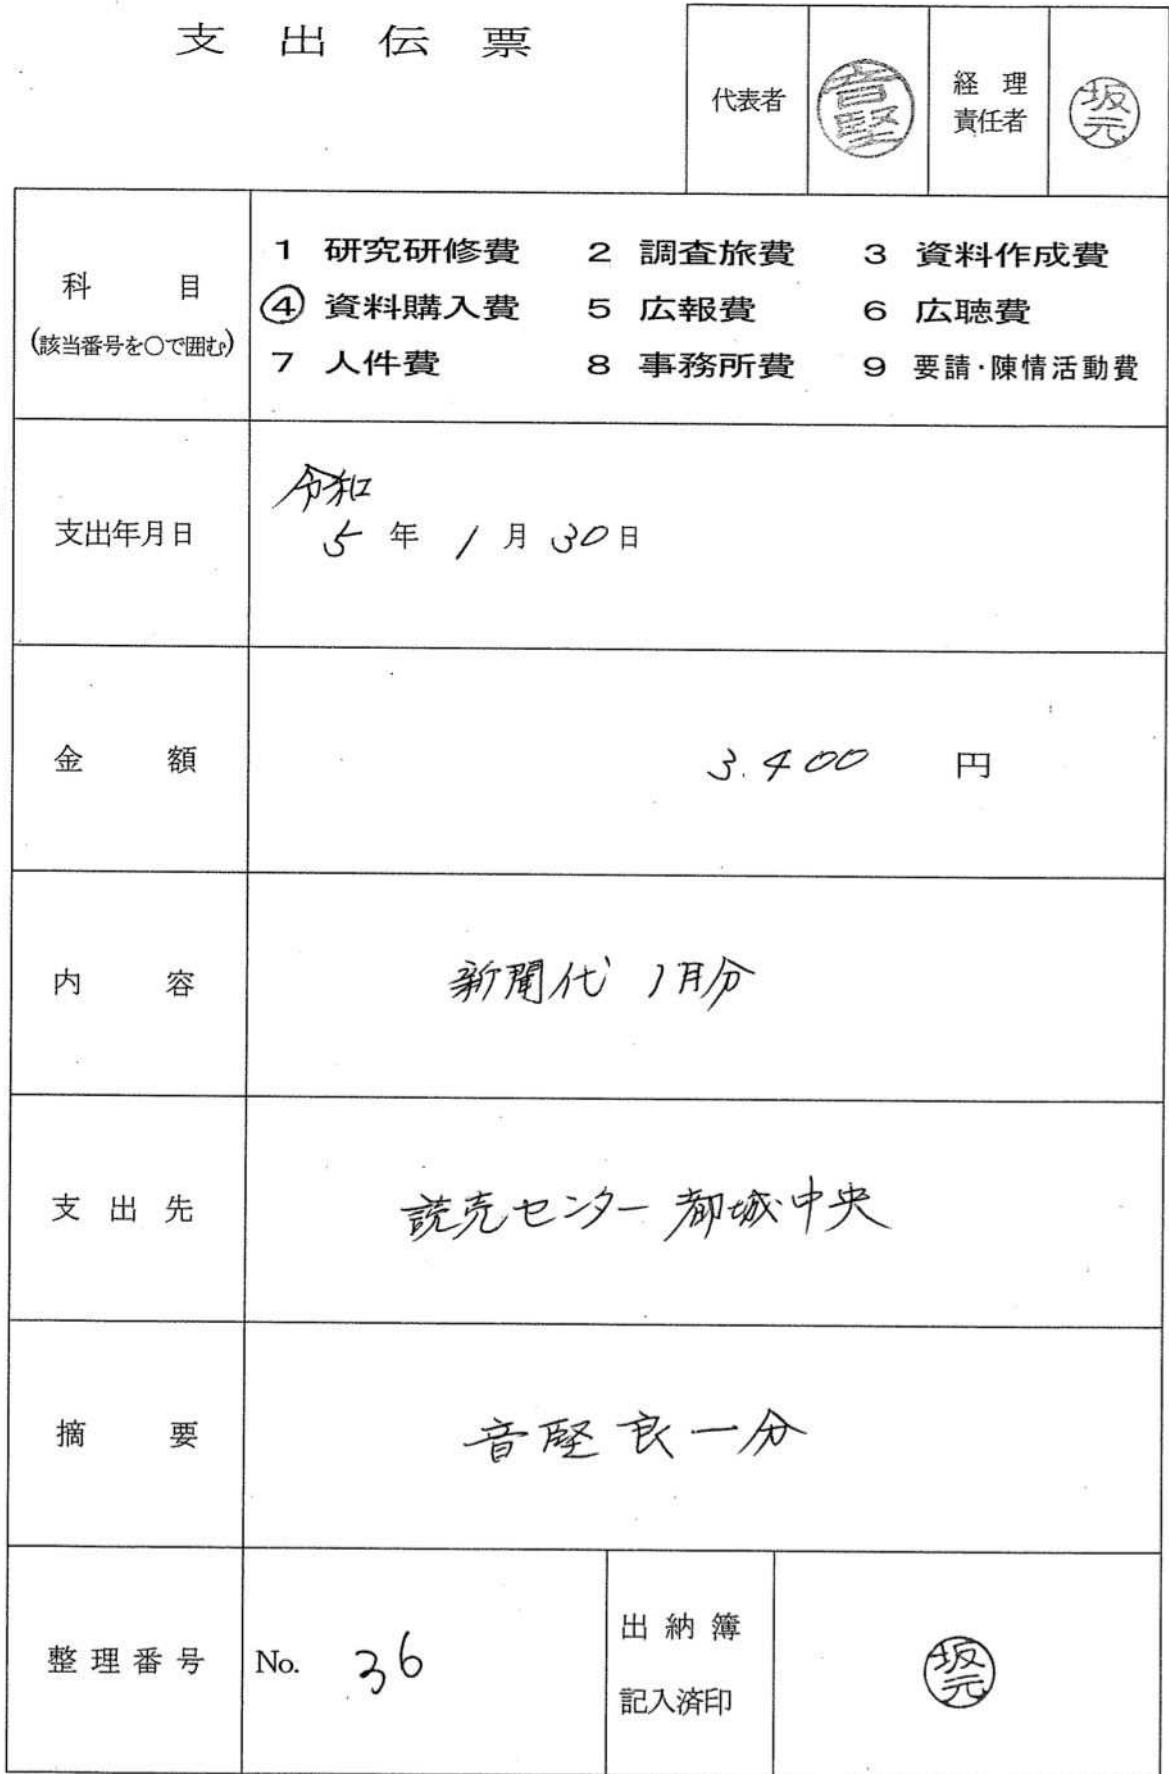 支出伝票
代表者 音堅 経理責任者 坂元
科目
(該当番号を〇で囲む)
1 研究研修費 2 調査旅費 3 資料作成費
④ 資料購入費 5 広報費 6 広聴費
7 人件費 8 事務所費 9 要請・陳情活動費
支出年月日
令和
5年1月30日
金額 3.400 円
内容 新聞代 1月分
支出先 読売センター都城中央
摘要 音堅良一分
整理番号 No. 36
出納簿
記入済印
坂元